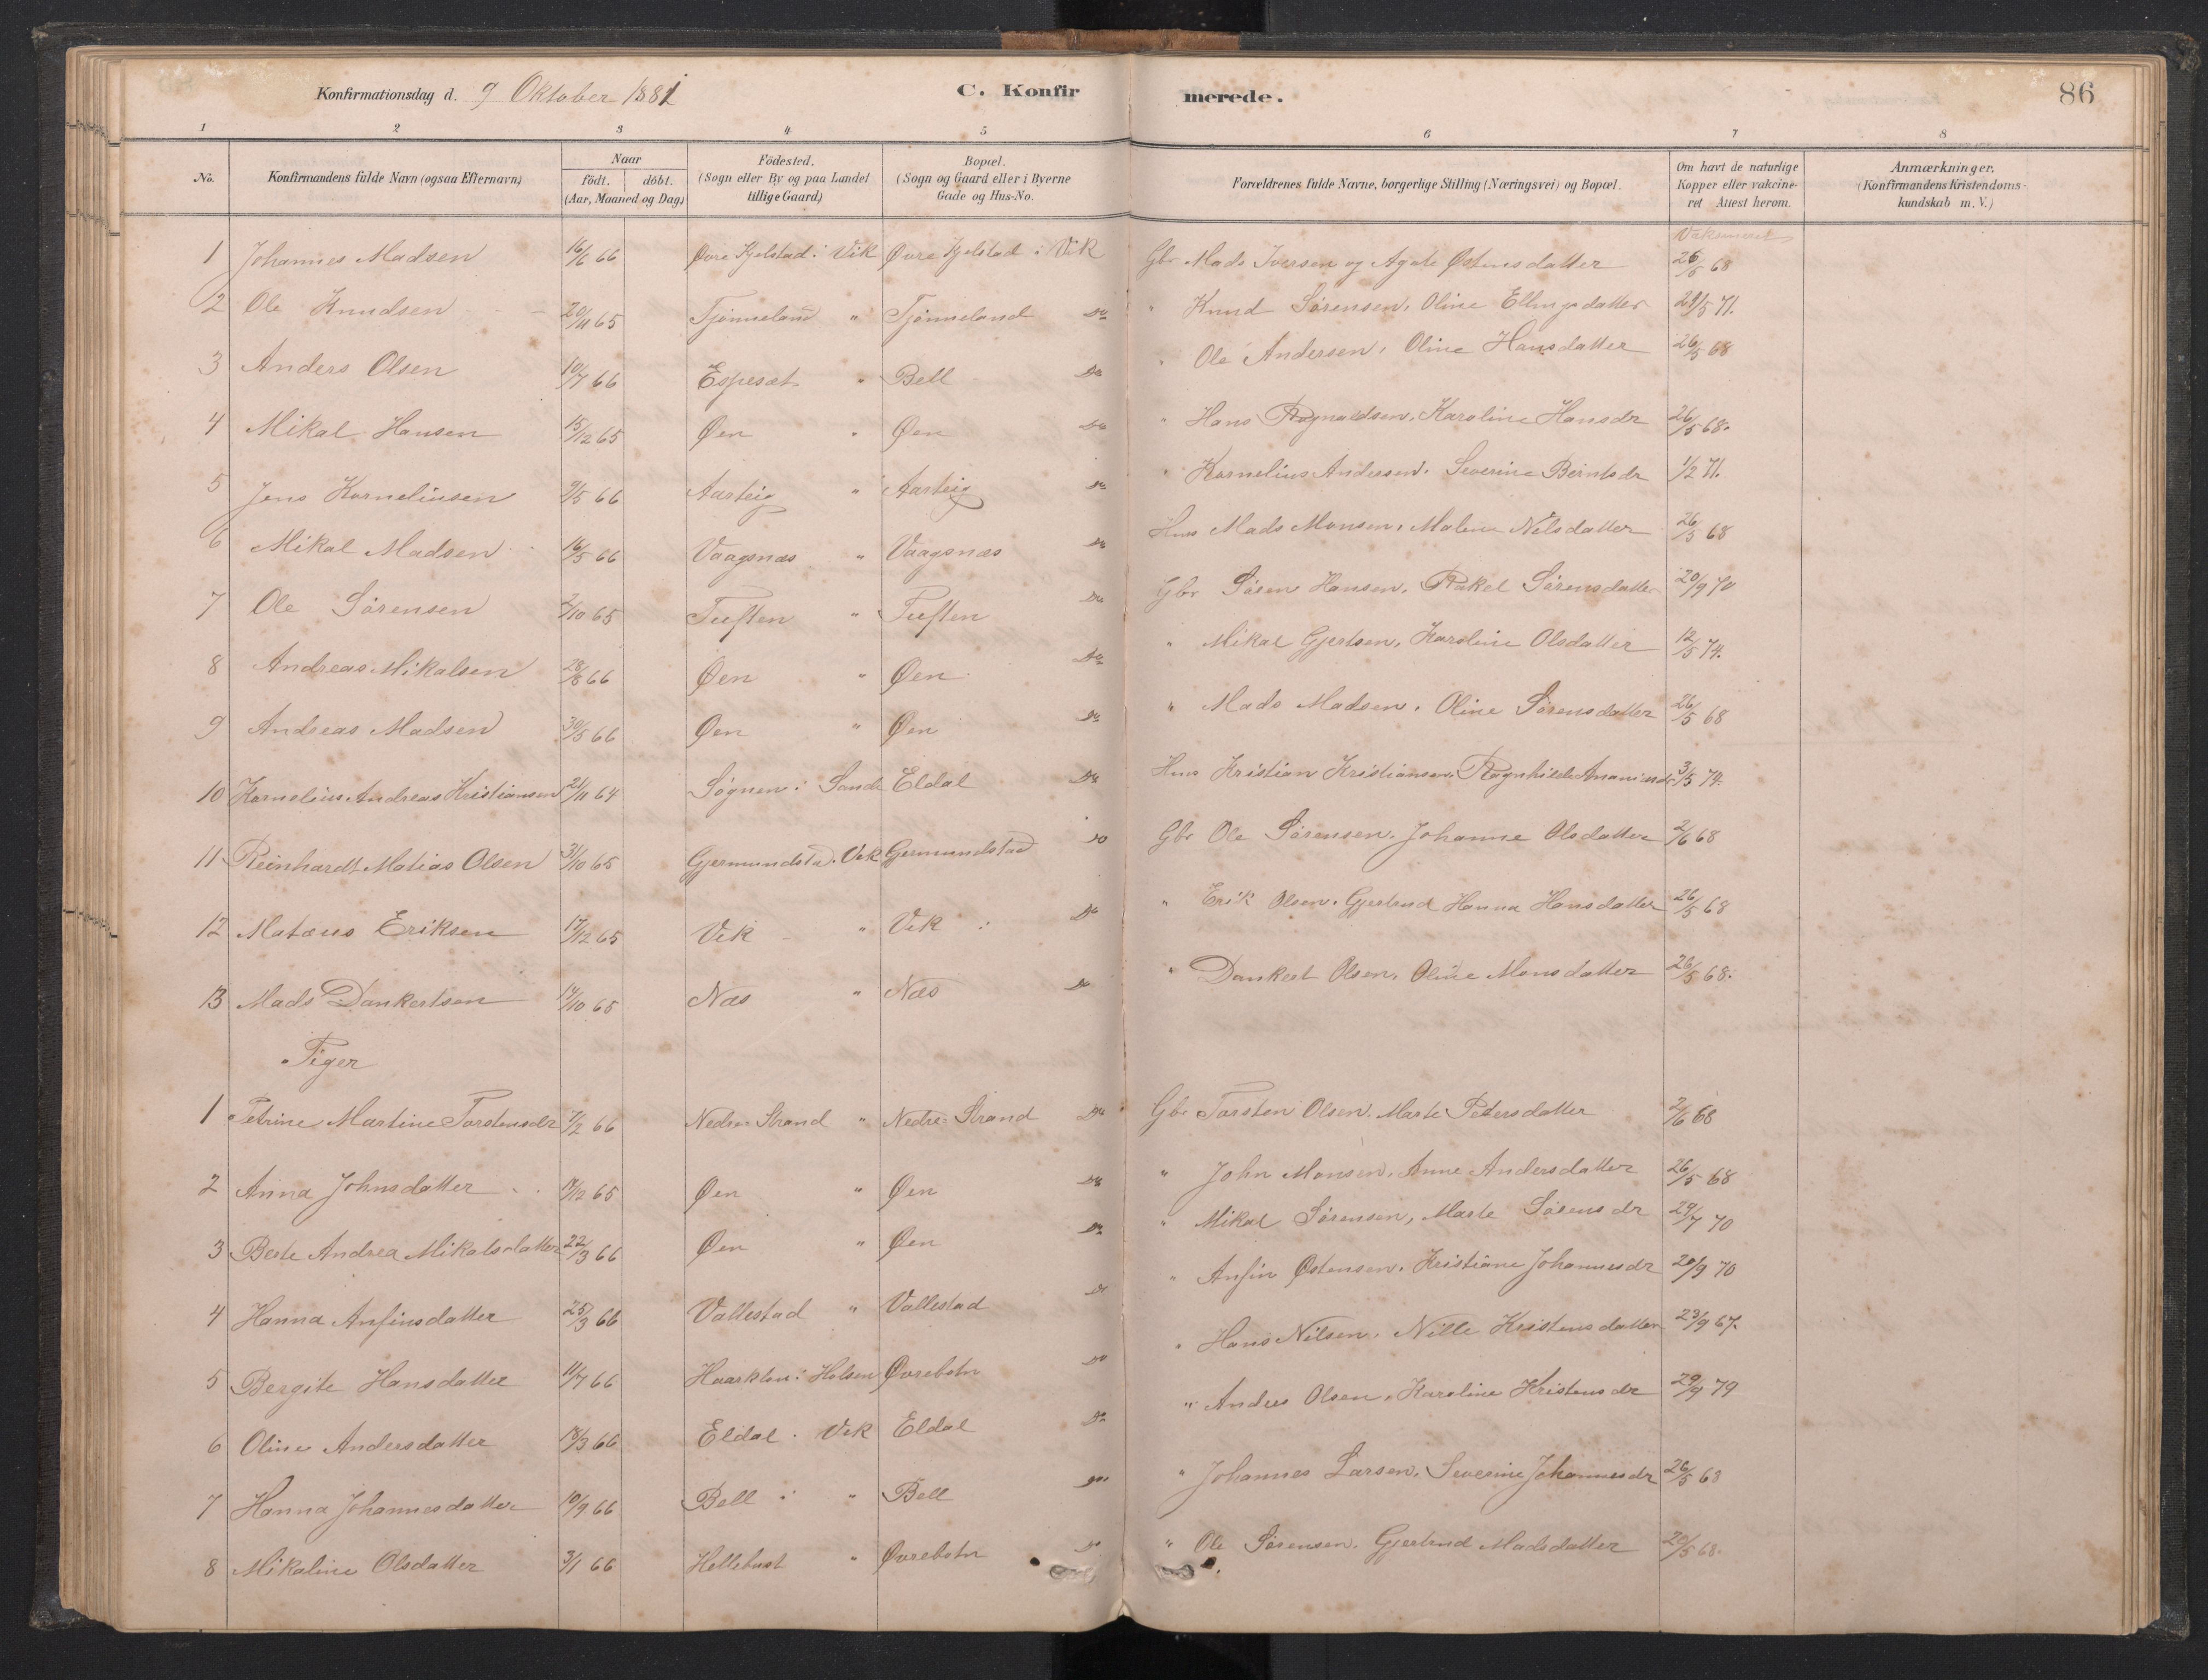 Konfirmationsdag d. 9 Oktober 1881 C. Konfirmerede. 86
1 2 3 4 5 6 7 8
No. Konfirmandens fulde Navn (ogsaa Efternavn) Naar födt. döbt. (Aar, Maaned og Dag) Födested. (Sogn eller By og paa Landet tillige Gaard) Bopæl. (Sogn og Gaard eller i Byerne Gade og Hus-No. Forældrenes fulde Navne, borgerlige Stilling (Næringsvei) og Bopæl. Om havt de naturlige Kopper eller vakcineret Attest herom. Anmærkninger. (Konfirmandens Kristendomskundskab m.V.)
Vakcineret
1 Johannes Madsen 16/6 66 Øvre Kjelstad i Vik Øvre Kjelstad i Vik Gbr Mads Iversen og Agate Østensdatter 26/5 68
2 Ole Knudsen 20/11 65 Tjønneland " Tjønneland Do " Knud Sørensen, Oline Ellingsdatter 29/5 71.
3 Anders Olsen 10/7 66 Espeset " Bell Do " Ole Andersen, Oline Hansdatter 26/5 68
4 Mikal Hansen 15/12 65 Øen " Øen Do " Hans Ragnaldsen, Karoline Hansdr 26/5 68.
5 Jens Kornelinsen 9/5 66 Aarteig " Aarteig Do " Kornelius Andersen, Severine Berntsdr 1/2 71.
6 Mikal Madsen 16/5 66 Vaagsnæs " Vaagsnæs Do Hus Mads Monsen, Malene Nilsdatter 26/5 68
7 Ole Sørensen 2/10 65 Tuften " Tuften Do Gbr Søren Hansen, Rakel Sørensdatter 20/9 70
8 Andreas Mikalsen 28/8 66 Øen " Øen Do " Mikal Gjertsen, Karoline Olsdatter 12/5 74.
9 Andreas Madsen 30/5 66 Øen " Øen Do " Mads Madsen, Oline Sørensdatter 26/5 68
10 Kornelius Andreas Kristiansen 21/11 64 Søgnen i Sande Eldal Do Hus Kristian Kristiansen, Ragnhilde 3/5 74.
11 Reinhardt Matias Olsen 31/10 65 Gjermundsta. Vik Gjermundstad Do Gbr Ole Sørensen, Johanne Olsdatter 2/6 68
12 Matæus Eriksen 17/12 65 Vik " Vik i Do " Erik Olsen, Gjertrud Hanna Hansdatter 26/5 68
13 Mads Dankertsen 14/10 65 Næs " Næs Do " Dankert Olsen, Oline Monsdatter 26/5 68.
Piger
1 Petrine Martine Torstensdr 7/2 66 Nedre Strand " Nedre Strand Do Gbr Torsten Olsen, Marte Petersdatter 2/6 68
2 Anna Johnsdatter 17/12 65 Øen " Øen Do " John Monsen, Anne Andersdatter 26/5 68
3 Berte Andrea Mikalsdatter 22/3 66 Øen " Øen Do " Mikal Sørensen, Marte Sørensdr 29/7 70
4 Hanna Anfinsdatter 25/3 66 Vallestad " Vallestad Do " Anfin Østensen, Kristiane Johannesdr 20/9 70
5 Bergite Hansdatter 11/7 66 Haarklau i Holsen Øvrebotn Do " Hans Nilsen, Nille Kristensdatter 23/9 67.
6 Oline Andersdatter 18/3 66 Eldal . Vik Eldal Do " Anders Olsen, Karoline Kristensdr 29/9 79
7 Hanna Johannesdatter 10/9 66 Bell i " Bell Do " Johannes Larsen, Severine Johannesdr 26/5 68
8 Mikaline Olsdatter 3/1 66 Hellebust " Øvrebotn Do " Ole Sørensen, Gjertrud Madsdatter 20/5 68.